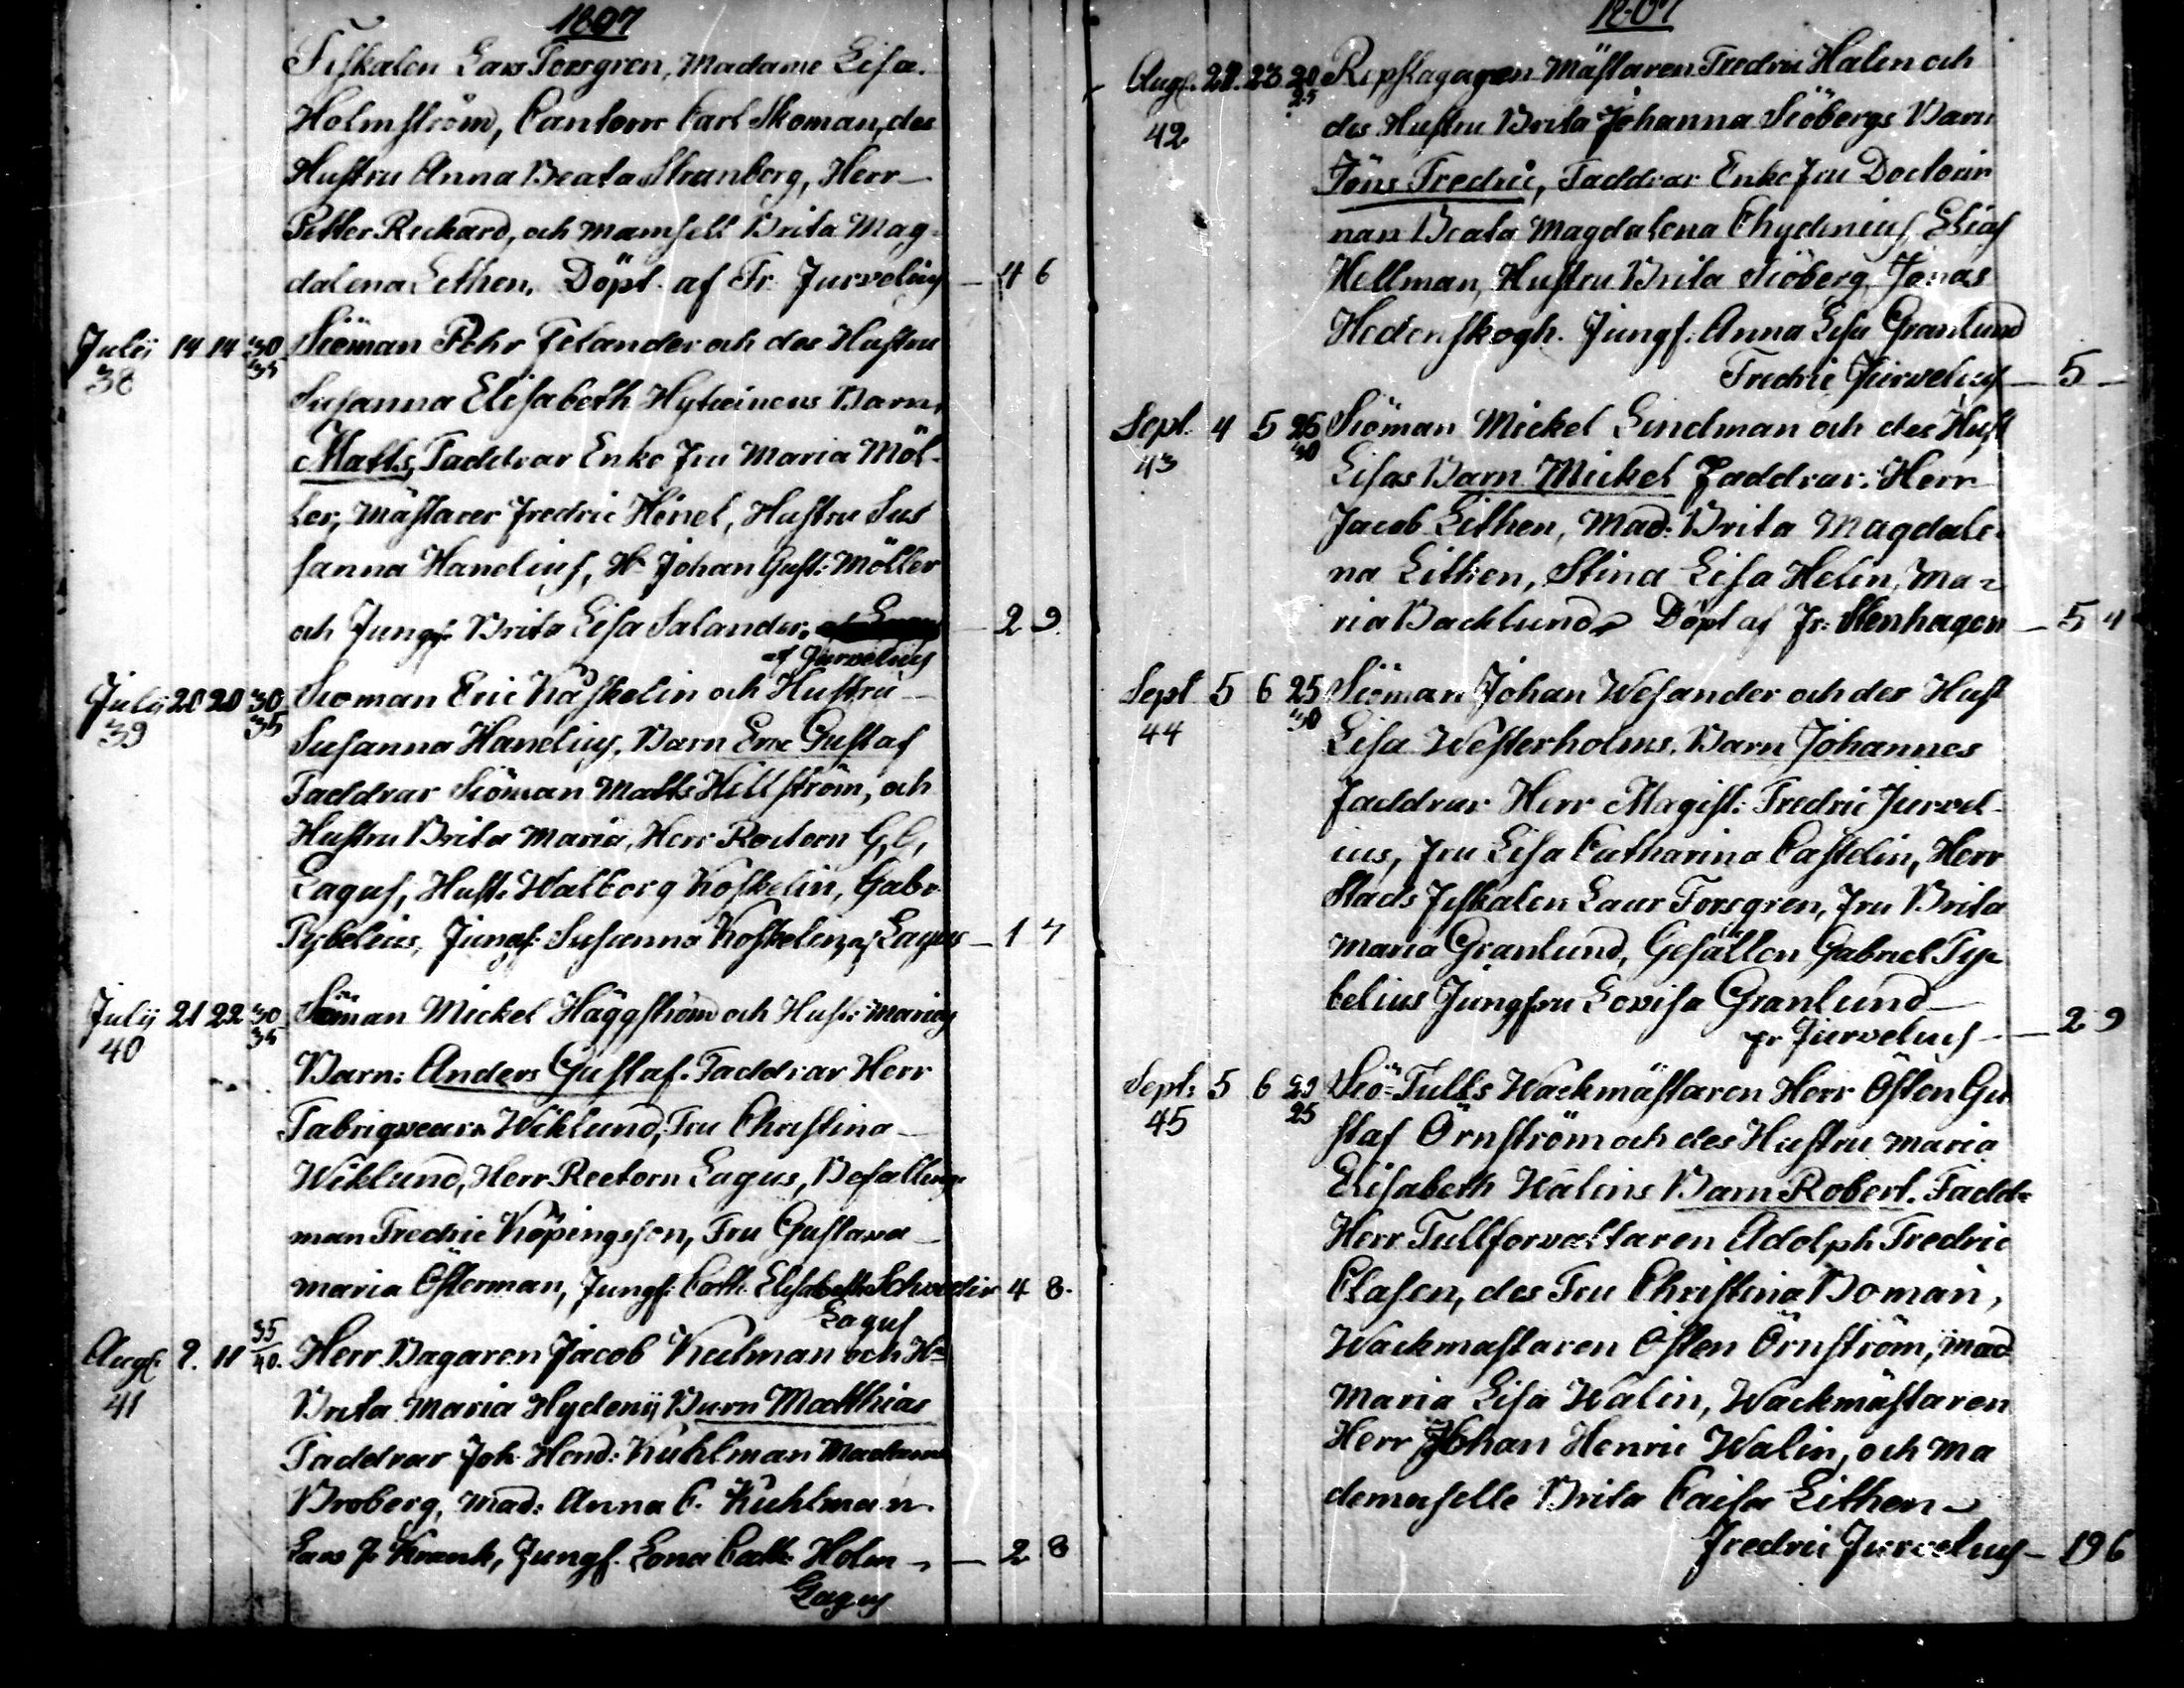 1807
Fiskalen Lars Forsgren, Madame Lisa
Holmström, Cantorn Carl Skoman, des
Hustru Anna Beata Stranberg, Herr
Petter Reckard, och Mamsell Brita Mag-
dalena Lithen. Döpt af Fr. Jurvelius — 4 6
Julii 14 14 30 Siöman Pehr Felander och des Hustru
38 35
Susanna Elisabeth Barn,
Matts, Faddrar Enke Fru Maria Möl-
ler, Mästarer Fredric Hinel, Hustru Sus
sanna Hanelius, Hr Johan Gust: Möller
och Jungf: Brita Lisa Salander. — 2 9.
af Jurvelius
Julii 20 20 30 Sioman Eric Kåskelin och Hustru
39 35
Susanna Hanelius, Barn Eric Gustaf
Faddrar Siöman Matts Hillström, och
Hustru Brita Maria, Herr Rectorn G, C,
Lagus, Hust: Walborg Koskelin, Gabr
Pybelius, Jungf: Susanna Koskelin, af Lagus — 1 7
Julij 21 22 30 Siöman Mickel Häggström och Hust: Marias
40 35
Barn: Anders Gustaf. Faddrar Herr
Fabriqueurn Wiklund, Fru Christina
Wiklund, Herr Rectorn Lagus, Befallings
man Fredric Köpingsson, Fru Gustava
Maria Österman, Jungf: Cath: Elisabeth Schwedir 4 8.
Lagus
Augs 9. 11 35 40. Herr Bagaren Jacob Kulman och Hu
41
Brita Maria Hydenij Barn Matthias
Faddrar Joh: Hend: Kuhlman Madam
Broberg, Mad: Anna C. Kuhlman
Lars J. Krank, Jungf. Lona Cath: Holm — 2 8
Lagus
1807
Augs. 22. 23 20 25 Repslagagen Mästaren Fredric Halen och
42
des Hustru Brita Johanna Siöbergs Barn
Jöns Fredric, Faddrar Enke fru Doctorin
nan Beata Magdalena Chydenius, Elias
Hellman, Hustru Brita Siöberg Jonas
Hedenskogh. Jungf: Anna Lisa Granlund
Fredric Jurvelius — 5 —
Sept. 4 5 25 30 Siöman Mickel Lindman och des Hust
43
Lisas Barn Mickel Faddrar. Herr
Jacob Lithen, Mad: Brita Magdale-
na Lithen, Stina Lisa Helin, Ma-
ria Backlund, Döpt af Fr: Stenhagen — 5 4
Sept 5 6 25 30 Siöman Johan Wesander och des Hust
44
Lisa Westerholms, Barn Johannes
Faddrar Herr Magist: Fredric Jurvel-
ius, Fru Lisa Catharina Castelin, Herr
Stads Fiskalen Laur Forsgren, Fru Brita
Maria Granlund, Gesällen Gabriel Ty-
belius Jungfru Lovisa Granlund
fr Jurvelius — 2 9
Sept: 5 6 25 Siö-Tulls Wackmästaren Herr Östen Gu
45
staf Örnström och des Hustru Maria
Elisabeth Walins Barn Robert. Fadd:
Herr Tullforvaltaren Adolph Fredric
Clasen, des Fru Christina Boman,
Wackmästaren Östen Örnström, Mad
Maria Lisa Walin, Wackmästaren
Herr Johan Henric Walin, och Ma
demoselle Brita Caisa Lithen
Fredric Jurvelius — 19 6